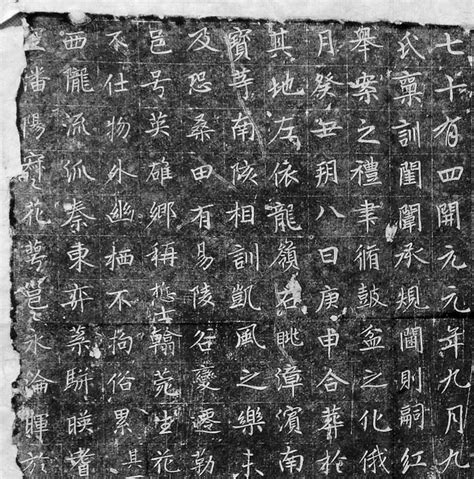 七十有四開元元年九月九
氏稟訓閨闈承規閫則嗣紅
舉案之禮聿脩鼓盆之化俄
月癸丑朔八日庚申合葬於
其地左依龍嶺右眺漳濱南
寶等南陔相訓凱風之樂未
及恐桑田有易陵谷變遷勒
邑号英雄鄉稱翰菀生花
不仕物外幽栖不拘俗累其
西隴流派秦東弈葉駢暎耆
潘陽花萼邕永淪暉於